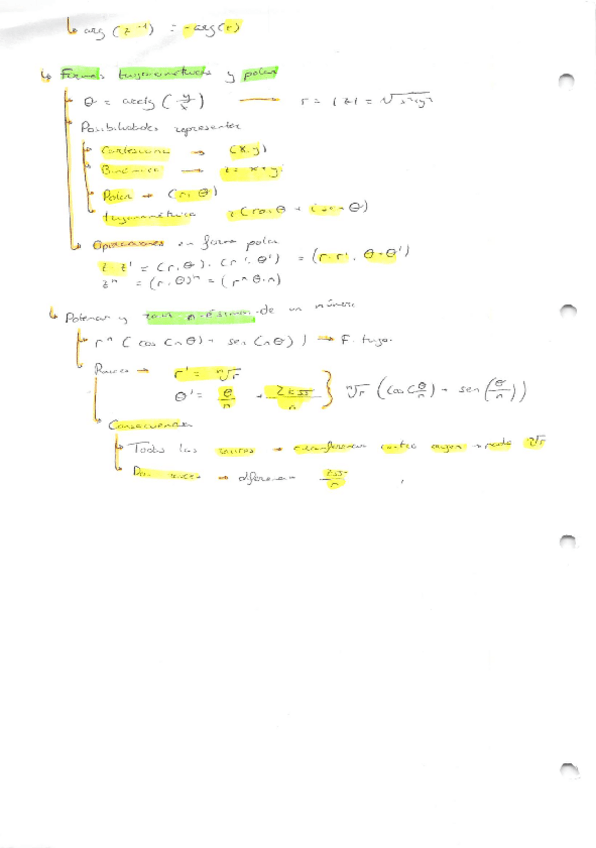 ↳ arg (z⁻¹) = -arg(z)
↳ Formas trigonométricas y polar
θ = arctg (y/x) → r = |z| = √x²+y²
Posibilidades representar
Cartesiana → (x, y)
Binómica → z = x + yi
Polar → (r, θ)
Trigonométrica r (cos θ + i sen θ)
Operaciones en forma polar
z · z' = (r, θ) · (r', θ') = (r · r', θ + θ')
zⁿ = (r, θ)ⁿ = (rⁿ θ·n)
↳ Potencias y raíz n-ésima de un número
rⁿ (cos (nθ) + sen (nθ)) → F. trigo.
Raíces → r' = ⁿ√r
θ' = θ/n + 2kπ/n } ⁿ√r (cos(θ/n) + sen(θ/n))
Consecuencias
Todas las raíces → circunferencia centro origen y radio ⁿ√r
Dos raíces → diferencia 2π/n